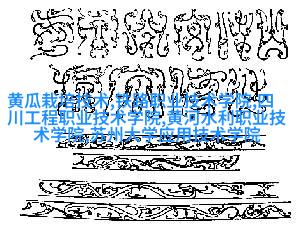 黄瓜栽培技术,铁路职业技术学院,四
川工程职业技术学院,黄河水利职业技
术学院,苏州大学应用技术学院